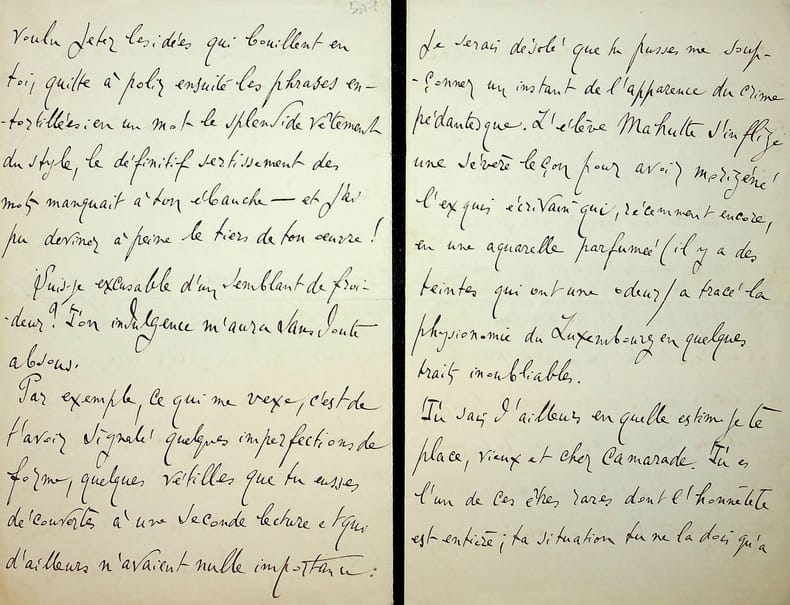 voulu jeter les idées qui bouillent en
toi, quitte à polir ensuite les phrases en-
-tortillées: en un mot le splendide vêtement
du style, le définitif sertissement des
mots manquait à ton ébauche — et j'ai
pu deviner à peine le tiers de ton œuvre!
Suis-je excusable d'un semblant de froi-
-deur? Ton indulgence m'aura sans doute
absous.
Par exemple, ce qui me vexe, c'est de
t'avoir signalé quelques imperfections de
forme, quelques vétilles que tu eusses
découvertes à une seconde lecture et qui
d'ailleurs n'avaient nulle importance:
Je serais désolé que tu pusses me soup-
-çonner un instant de l'apparence du crime
pédantesque. L'élève Mahutte s'inflige
une sévère leçon pour avoir morigéné
l'exquis écrivain qui, récemment encore,
en une aquarelle parfumée (il y a des
teintes qui ont une odeur) a tracé la
physionomie du Luxembourg en quelques
traits inoubliables.
Tu sais d'ailleurs en quelle estime je te
place, vieux et cher camarade. Tu es
l'un de ces êtres rares dont l'honnêteté
est entière; ta situation tu ne la dois qu'à